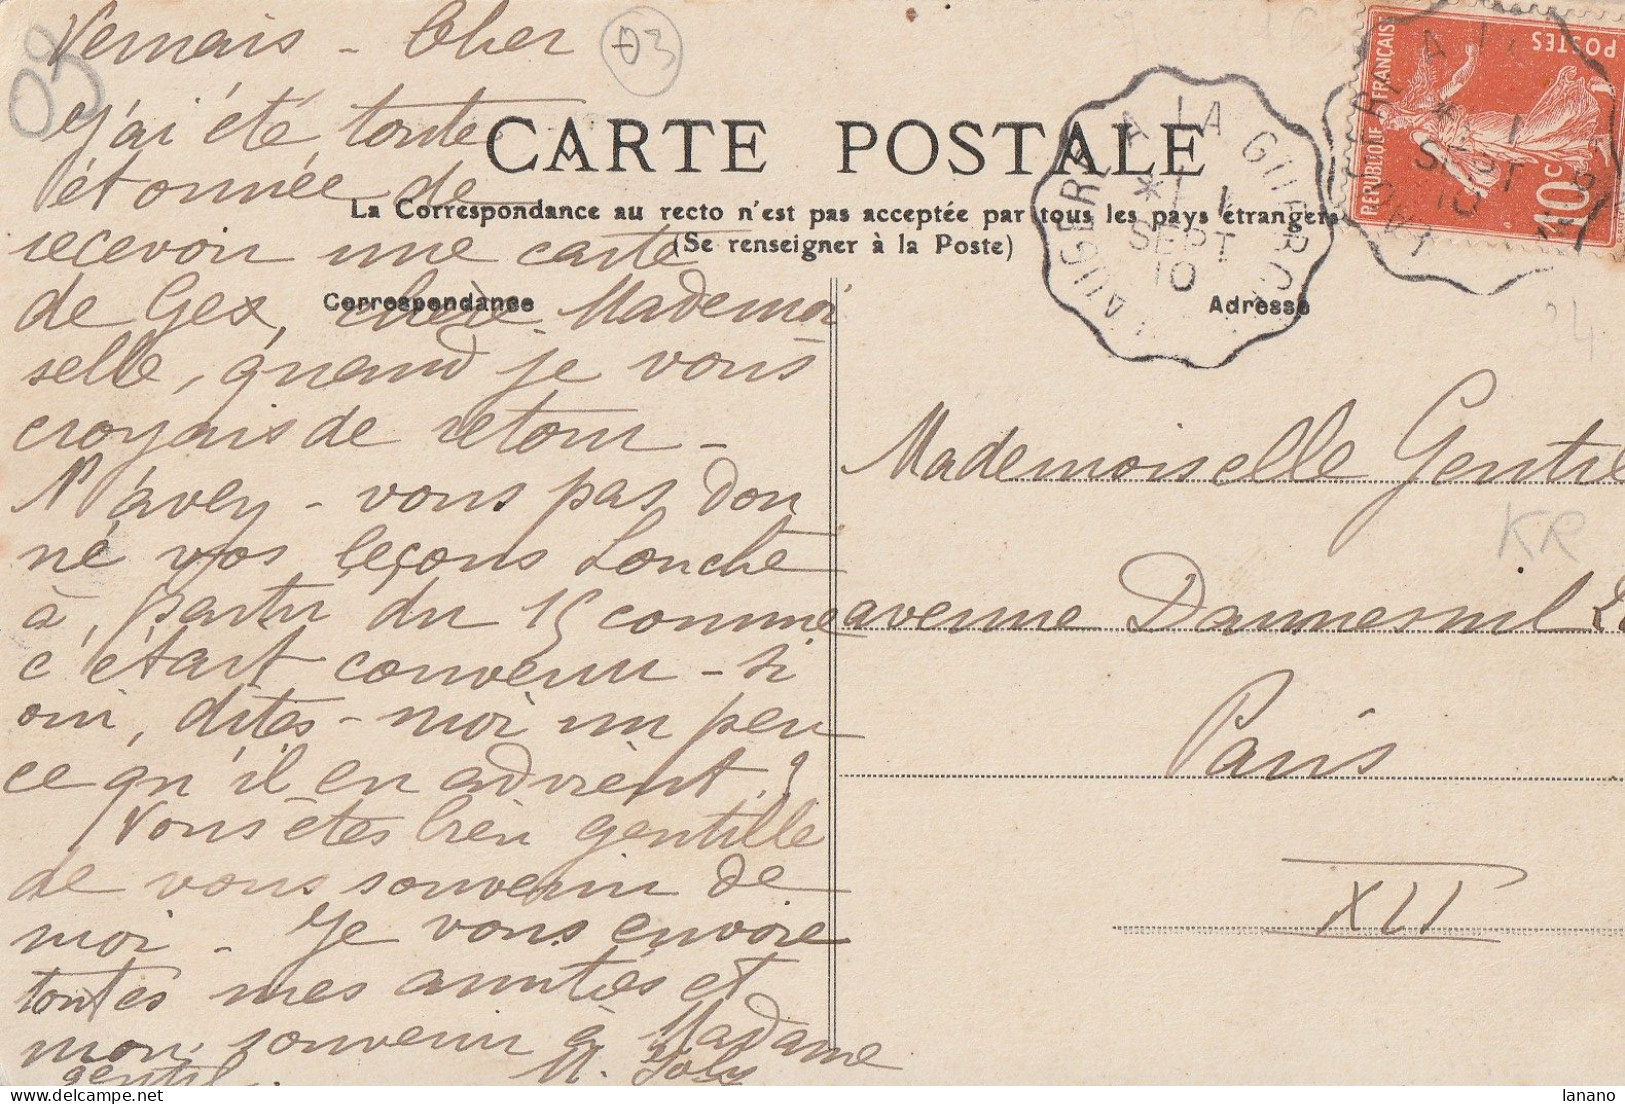 Vernais - Cher -
03
03
J'ai été toute
étonnée de
recevoir une carte
de Gex, chère Mademoi
selle, quand je vous
croyais de retour -
N'avez - vous pas don
né vos leçons Louche
à partir du 15 comme
c'était convenu - si
oui, dites - moi un peu
ce qu'il en advient ?
Vous êtes bien gentille
de vous souvenir de
moi - Je vous envoie
toutes mes amitiés et
mon souvenir à Madame
gentil. M. Joly
CARTE POSTALE
La Correspondance au recto n'est pas acceptée par tous les pays étrangers
(Se renseigner à la Poste)
Correspondance
Adresse
A LA GUERCHE
* 1
SEPT
10
REPUBLIQUE FRANÇAISE
POSTES
10c
1
SEPT
10
34
Mademoiselle Gentil
KR
avenue Daumesnil
Paris
XII
lanano